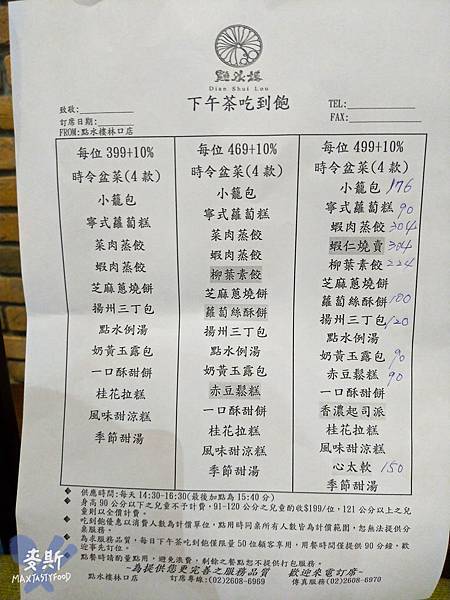 點水樓
Dian Shui Lou
下午茶吃到飽
致敬:
訂席日期:
FROM:點水樓林口店
TEL:
FAX:
每位 399+10%
時令盆菜(4 款)
小籠包
寧式蘿蔔糕
菜肉蒸餃
蝦肉蒸餃
芝麻蔥燒餅
揚州三丁包
點水例湯
奶黃玉露包
一口酥甜餅
桂花拉糕
風味甜涼糕
季節甜湯
每位 469+10%
時令盆菜(4 款)
小籠包
寧式蘿蔔糕
菜肉蒸餃
蝦肉蒸餃
柳葉素餃
芝麻蔥燒餅
蘿蔔絲酥餅
揚州三丁包
點水例湯
奶黃玉露包
赤豆鬆糕
一口酥甜餅
桂花拉糕
風味甜涼糕
季節甜湯
每位 499+10%
時令盆菜(4 款)
小籠包 176
寧式蘿蔔糕 90
蝦肉蒸餃 304
蝦仁燒賣 304
柳葉素餃 224
芝麻蔥燒餅
蘿蔔絲酥餅 100
揚州三丁包 120
點水例湯
奶黃玉露包 90
赤豆鬆糕 90
一口酥甜餅
香濃起司派
桂花拉糕
風味甜涼糕
心太軟 150
季節甜湯
◆ 供應時間:每天 14:30-16:30(最後加點為 15:40 分)
◆ 身高 90 公分以下之兒童不予計費，91-120 公分之兒童酌收$199/位，121 公分以上之兒
童則以全價計費。
◆ 吃到飽優惠以消費人數為計價單位，點用時同桌所有人數皆為計價範圍，恕無法提供分
桌服務。
◆ 為求服務品質，每日下午茶吃到飽僅限量 50 位顧客享用，用餐時間僅提供 90 分鐘，歡
迎事先訂位。
◆ 點餐時請酌量點用，避免浪費，剩餘之餐點恕不提供打包服務。
~為提供您更完善之服務品質 歡迎來電訂席~
點水樓林口店 訂席專線:(02)2608-6969 傳真服務(02)2608-6970
麥斯
MAXTASTYFOOD